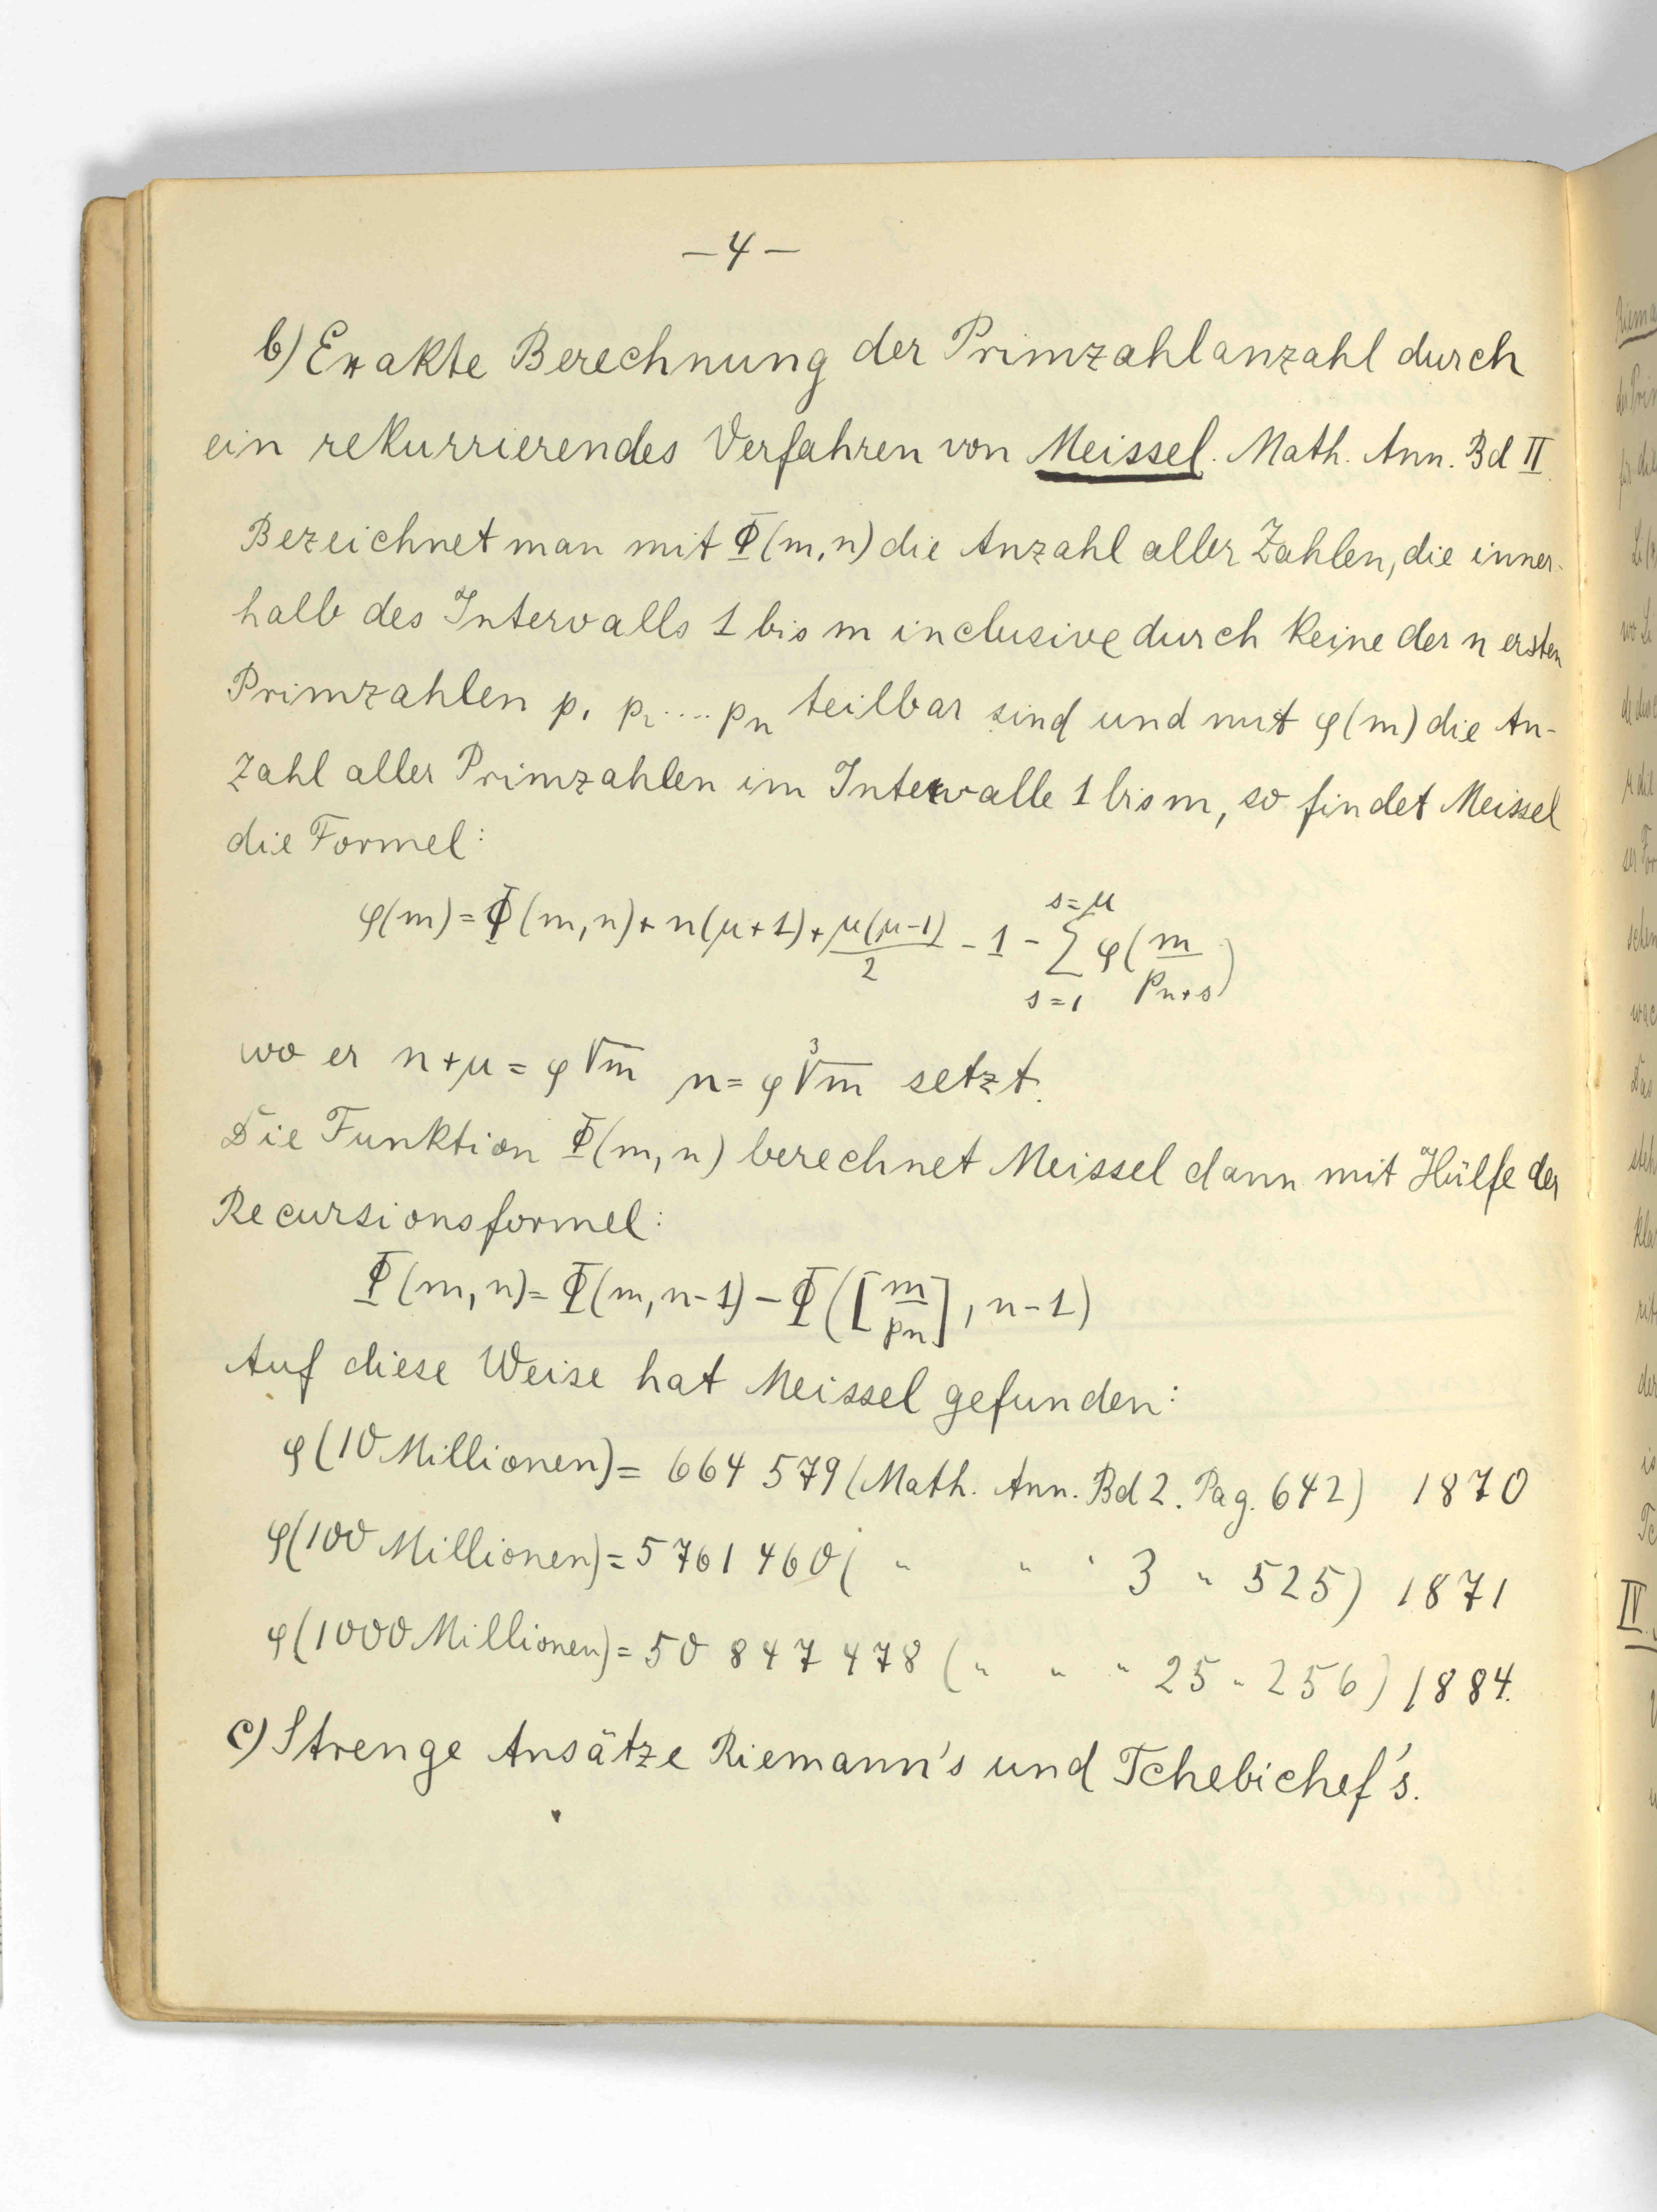 – 4 –
b) Exakte Berechnung der Primzahlanzahl durch
ein rekurrierendes Verfahren von Meissel. Math. Ann. Bd II.
Bezeichnet man mit Φ(m,n) die Anzahl aller Zahlen, die inner-
halb des Intervalls 1 bis m inclusive durch keine der n ersten
Primzahlen p₁ p₂ .... pₙ teilbar sind und mit φ(m) die An-
zahl aller Primzahlen im Intervalle 1 bis m, so findet Meissel
die Formel:
φ(m) = Φ(m,n) + n(μ+1) + μ(μ-1)/2 - 1 - ∑_{s=1}^{s=μ} φ(m/p_{n+s})
wo er n+μ = φ√m n = φ∛m setzt.
Die Funktion Φ(m,n) berechnet Meissel dann mit Hülfe der
Recursionsformel:
Φ(m,n) = Φ(m,n-1) – Φ([m/pₙ], n-1)
Auf diese Weise hat Meissel gefunden:
φ(10 Millionen) = 664 579 (Math. Ann. Bd 2. Pag. 642) 1870
φ(100 Millionen) = 5 761 460 ( " " " 3 " 525) 1871
φ(1000 Millionen) = 50 847 478 ( " " " 25 " 256) 1884.
c) Strenge Ansätze Riemann's und Tchebichef's.
IV.